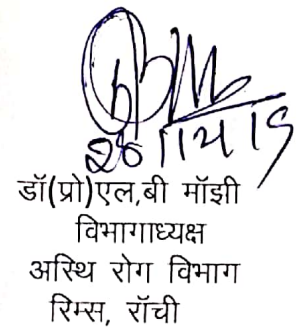 28/12/19
डॉ(प्रो)एल,बी मॉझी
विभागाध्यक्ष
अस्थि रोग विभाग
रिम्स, रॉची